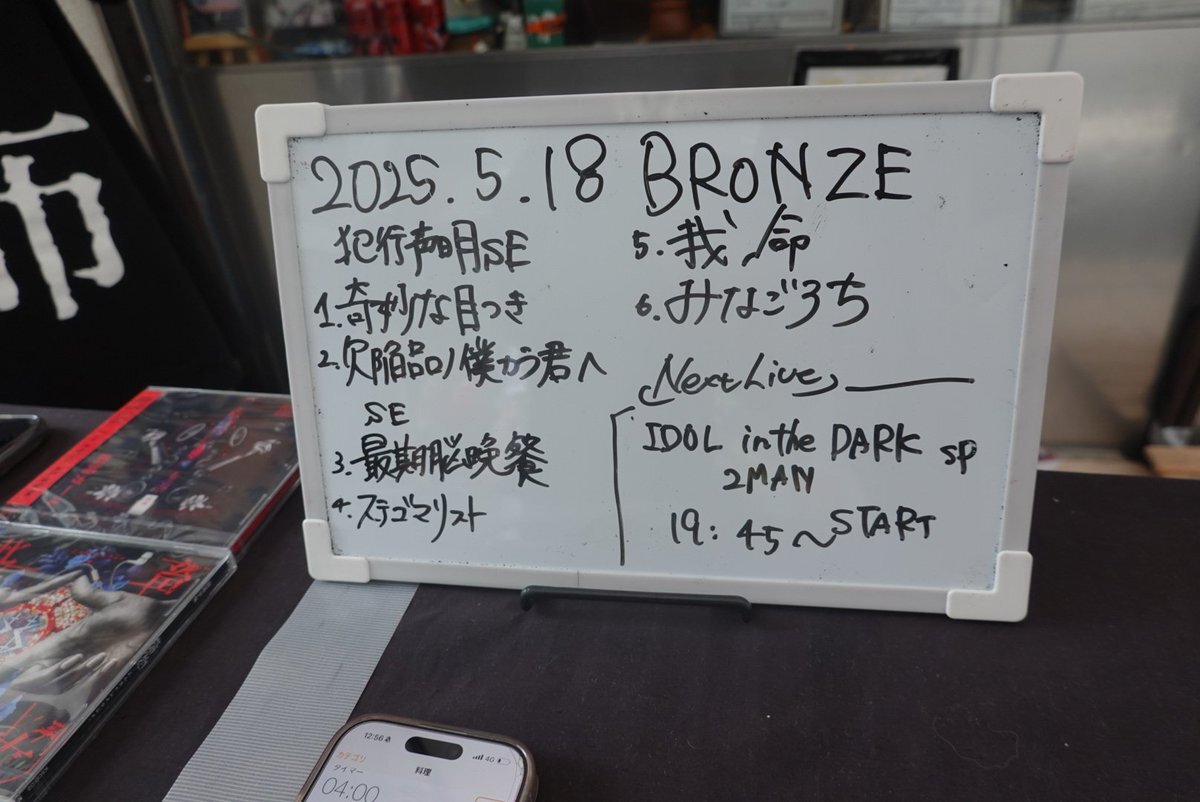 2025.5.18 BRONZE
犯行声明SE
1.奇妙な目つき
2.欠陥品ノ僕から君へ
SE
3.最期脳晩餐
4.ステゴマリスト
5.我ノ命
6.みなごろち
Next Live
IDOL in the DARK SP
2MAN
19:45~START
布
12:56
4G
カテゴリ
料理
タイマー
04:00